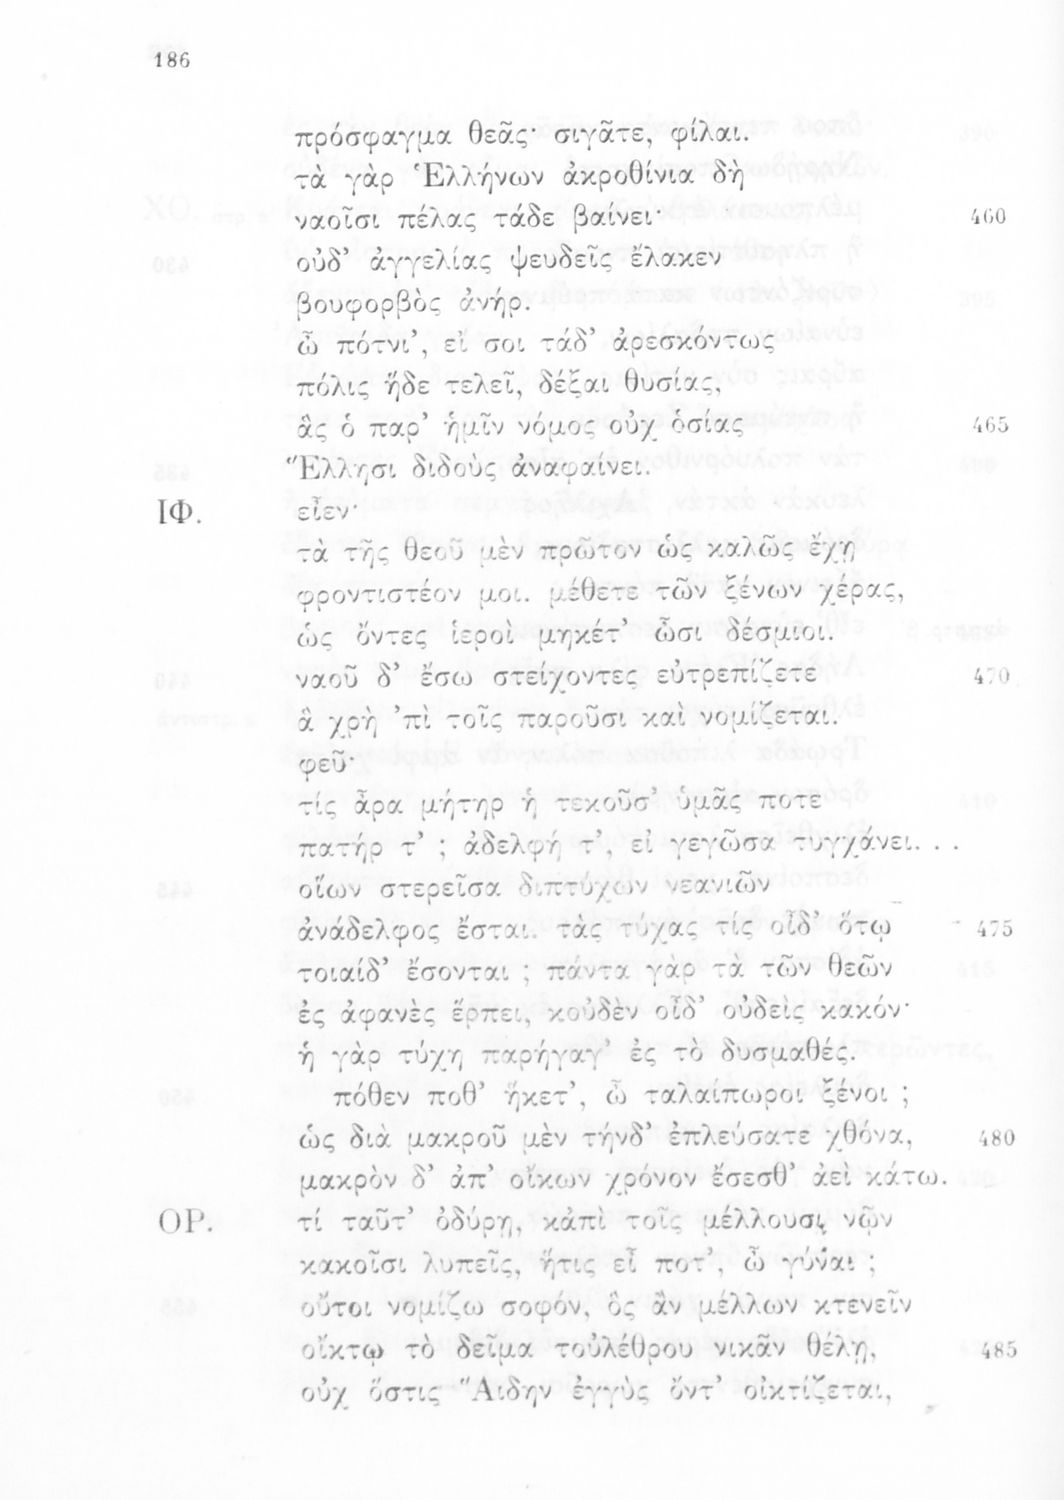 186
πρόσφαγμα θεᾶς· σιγᾶτε, φίλαι.
τὰ γὰρ Ἑλλήνων ἀκροθίνια δὴ
ναοῖσι πέλας τάδε βαίνει· 460
οὐδ’ ἀγγελίας ψευδεῖς ἔλακεν
βουφορβὸς ἀνήρ.
ὦ πότνι’, εἴ σοι τάδ’ ἀρεσκόντως
πόλις ἥδε τελεῖ, δέξαι θυσίας,
ἃς ὁ παρ’ ἡμῖν νόμος οὐχ ὁσίας 465
Ἕλλησι διδοὺς ἀναφαίνει.
ΙΦ. εἶεν·
τὰ τῆς θεοῦ μὲν πρῶτον ὡς καλῶς ἔχῃ
φροντιστέον μοι. μέθετε τῶν ξένων χέρας,
ὡς ὄντες ἱεροὶ μηκέτ’ ὦσι δέσμιοι.
ναοῦ δ’ ἔσω στείχοντες εὐτρεπίζετε 470
ἃ χρὴ ’πὶ τοῖς παροῦσι καὶ νομίζεται.
φεῦ·
τίς ἆρα μήτηρ ἡ τεκοῦσ’ ὑμᾶς ποτε
πατήρ τ’ ; ἀδελφή τ’, εἰ γεγῶσα τυγχάνει. . .
οἵων στερεῖσα διπτύχων νεανιῶν
ἀνάδελφος ἔσται. τὰς τύχας τίς οἶδ’ ὅτῳ 475
τοιαίδ’ ἔσονται ; πάντα γὰρ τὰ τῶν θεῶν
ἐς ἀφανὲς ἕρπει, κοὐδὲν οἶδ’ οὐδεὶς κακόν·
ἡ γὰρ τύχη παρήγαγ’ ἐς τὸ δυσμαθές.
πόθεν ποθ’ ἥκετ’, ὦ ταλαίπωροι ξένοι ;
ὡς διὰ μακροῦ μὲν τήνδ’ ἐπλεύσατε χθόνα, 480
μακρὸν δ’ ἀπ’ οἴκων χρόνον ἔσεσθ’ ἀεὶ κάτω.
ΟΡ. τί ταῦτ’ ὀδύρῃ, κἀπὶ τοῖς μέλλουσι νῷν
κακοῖσι λυπεῖς, ἥτις εἶ ποτ’, ὦ γύναι ;
οὔτοι νομίζω σοφόν, ὃς ἂν μέλλων κτενεῖν
οἴκτῳ τὸ δεῖμα τοὐλέθρου νικᾶν θέλῃ, 485
οὐχ ὅστις Ἅιδην ἐγγὺς ὄντ’ οἰκτίζεται,